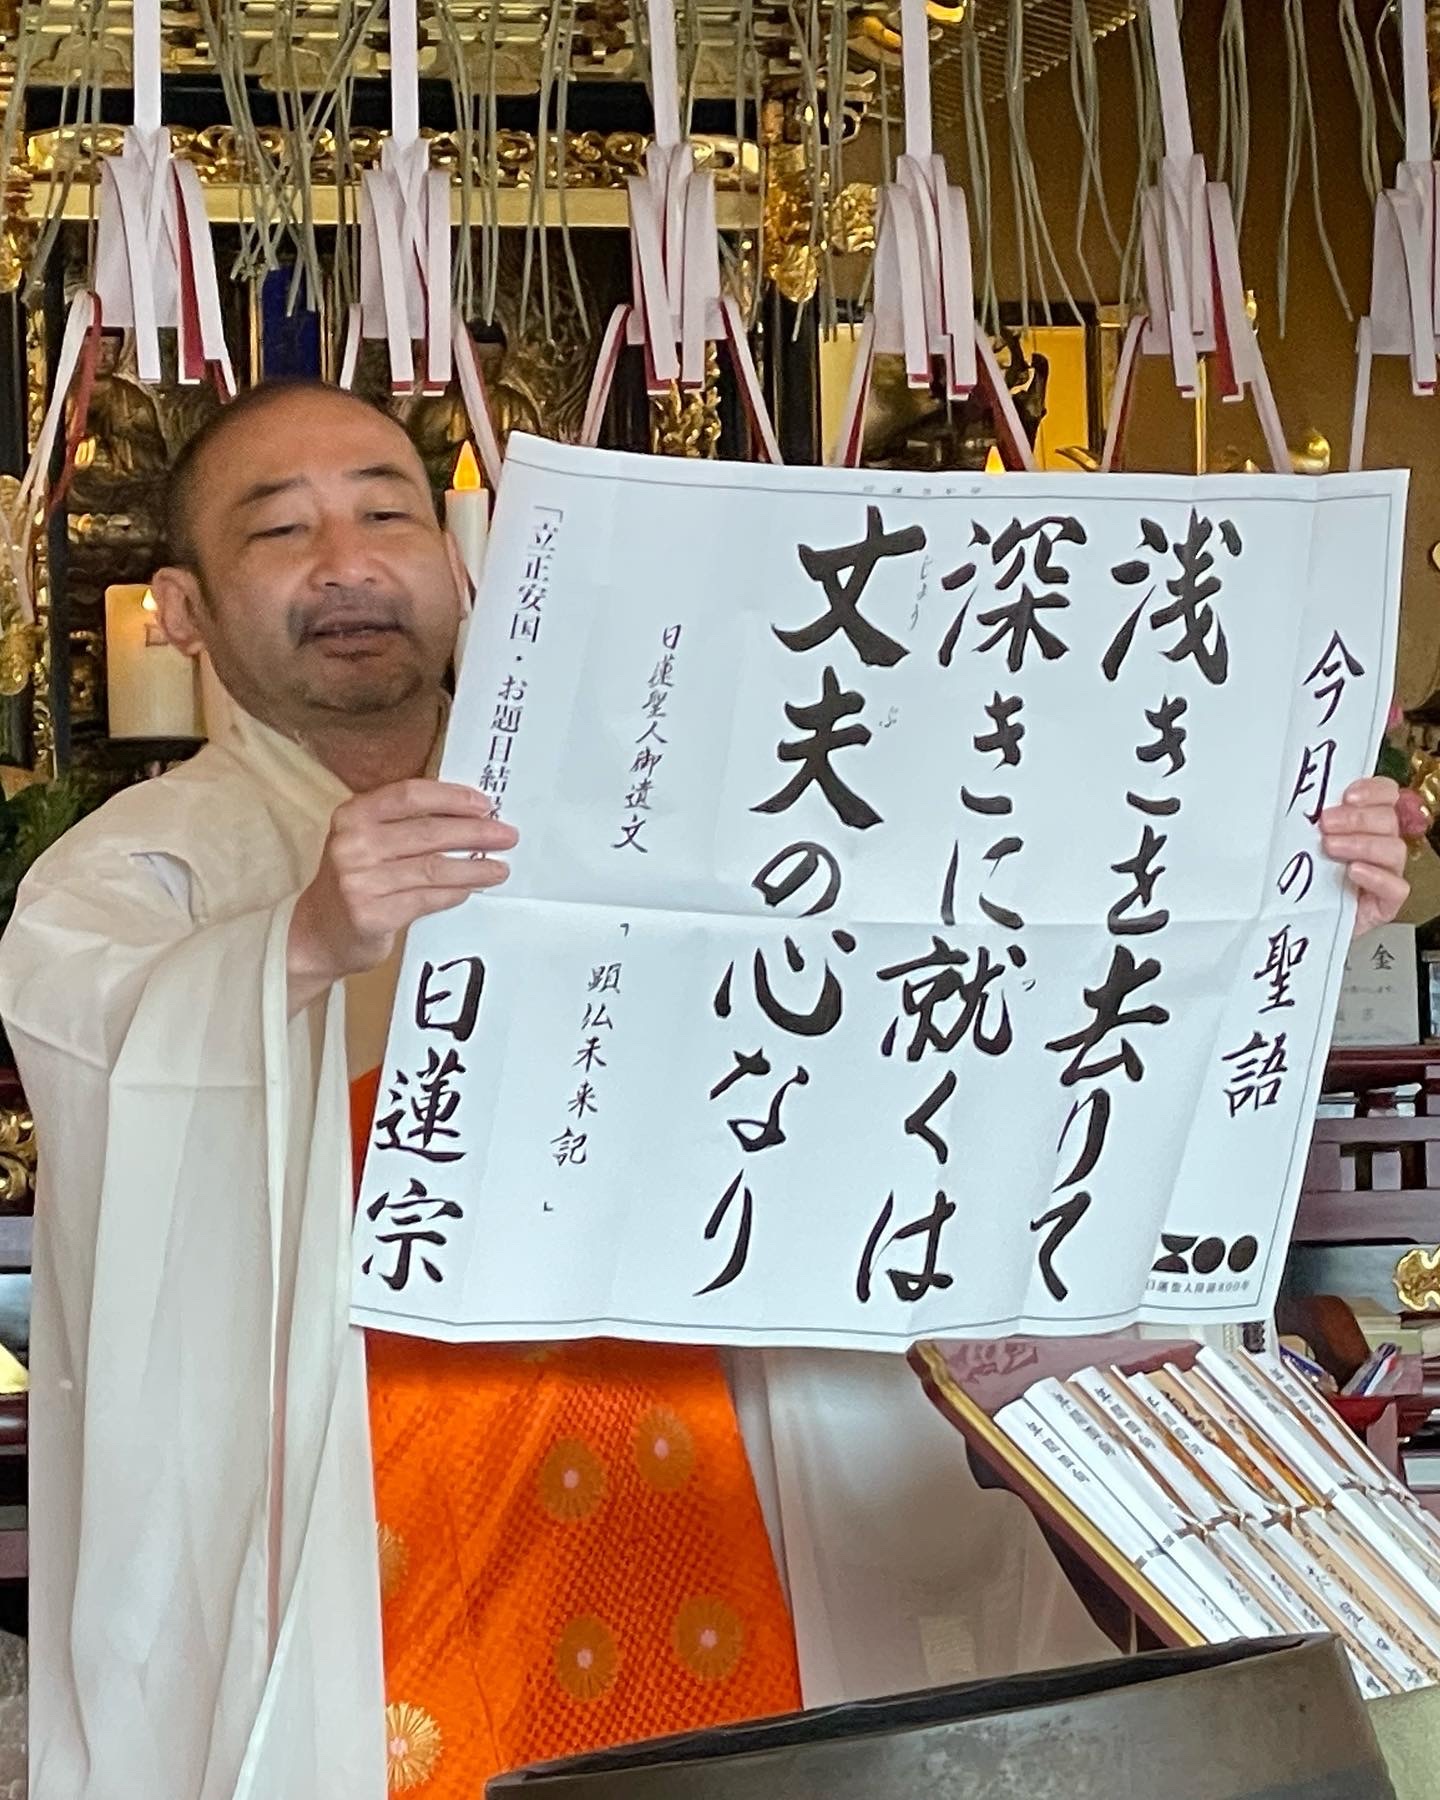 今月の聖語
浅きを去りて
深きに就くは
丈夫の心なり
つ
じょうぶ
日蓮聖人御遺文
「顕仏未来記」
「立正安国・お題目結
日蓮宗
800
日蓮聖人降誕800年